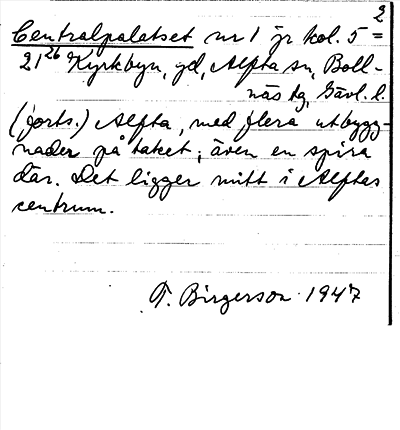 2
Centralpalatset nr 1 jr kol. 5 =
21²⁶ Kyrkbyn, gd, Alfta sn, Boll-
näs tg, Gävl. l.
(forts.) Alfta, med flera utbygg-
nader på taket; även en spira
där. Det ligger mitt i Alftas
centrum.
T. Birgerson 1947